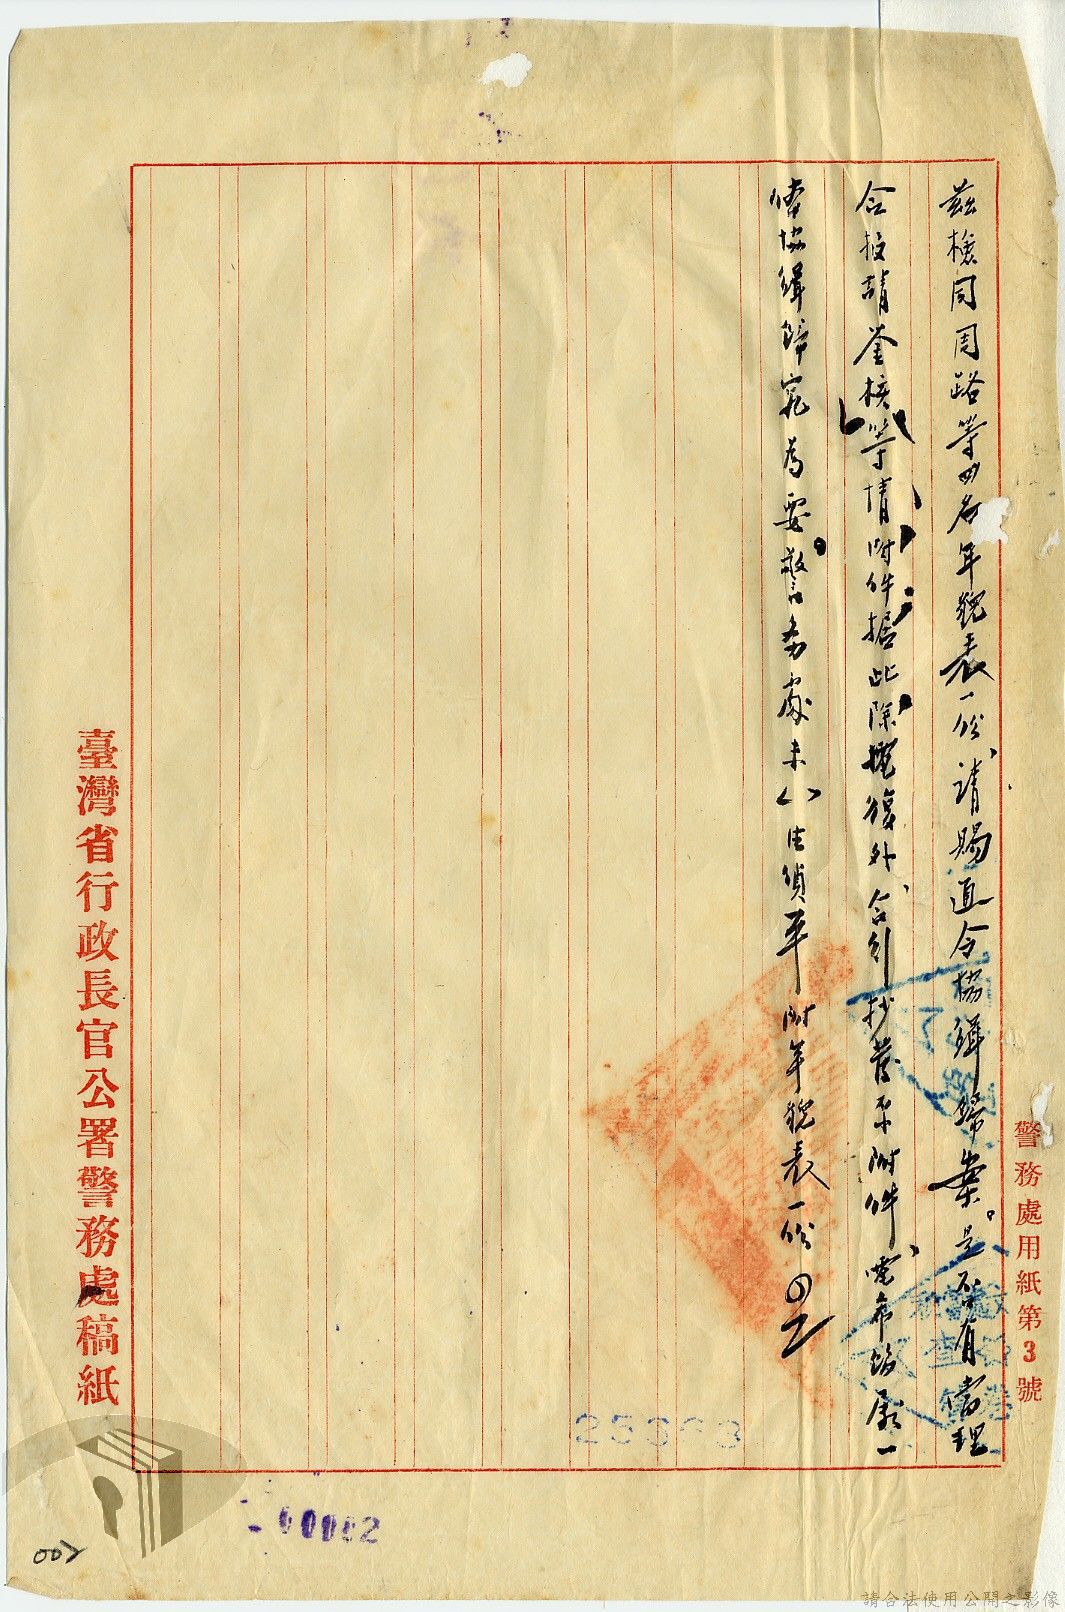 警務處用紙第3號
茲檢同周路等四名年貌表一份、請賜通令協緝歸案。是否有當理
合報請鉴核等情附件據此除復外、合行抄發原附件、電希飭屬一
体協緝歸究為要。警務處未 偵平附年貌表一份
臺灣省行政長官公署警務處稿紙
00002
002
請合法使用公開之影像